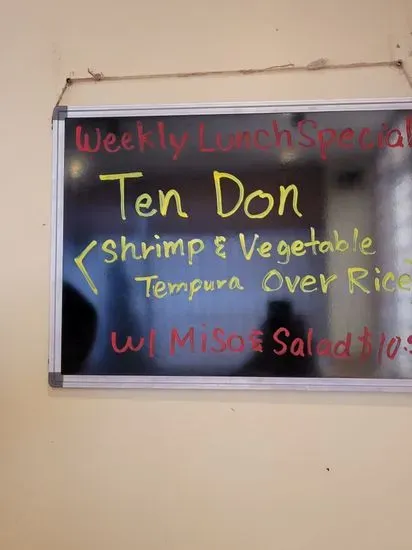 Weekly Lunch Special
Ten Don
<Shrimp & Vegetable
Tempura Over Rice
w/ Miso & Salad $10.